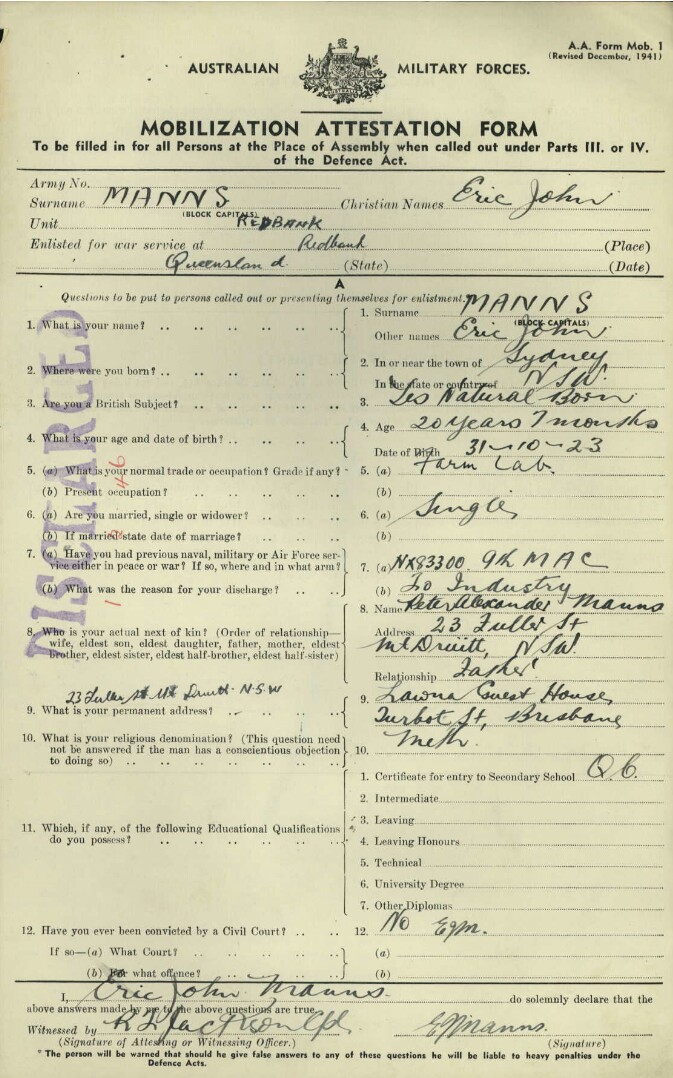 A.A. Form Mob. 1
(Revised December, 1941)
AUSTRALIAN MILITARY FORCES.
MOBILIZATION ATTESTATION FORM
To be filled in for all Persons at the Place of Assembly when called out under Parts III. or IV.
of the Defence Act.
Army No.
Surname MANNS Christian Names Eric John
(BLOCK CAPITALS)
Unit REDBANK
Enlisted for war service at Redbank (Place)
Queensland. (State) (Date)
A
Questions to be put to persons called out or presenting themselves for enlistment.
1. What is your name? 1. Surname MANNS
(BLOCK CAPITALS)
Other names Eric John
2. Where were you born? 2. In or near the town of Sydney
In the state or country of NSW.
3. Are you a British Subject? 3. Yes Natural Born
4. What is your age and date of birth? 4. Age 20 years 7 months
Date of Birth 31-10-23
5. (a) What is your normal trade or occupation? Grade if any? 5. (a) Farm Lab.
(b) Present occupation? (b)
6. (a) Are you married, single or widower? 6. (a) Single
(b) If married state date of marriage? (b)
7. (a) Have you had previous naval, military or Air Force ser-
vice either in peace or war? If so, where and in what arm? 7. (a) NX83300 9th MAC
(b) What was the reason for your discharge? (b) To Industry
8. Who is your actual next of kin? (Order of relationship—
wife, eldest son, eldest daughter, father, mother, eldest
brother, eldest sister, eldest half-brother, eldest half-sister)
8. Name Peter Alexander Manns
Address 23 Fuller St
Mt Druitt, NSW.
Relationship Father
23 Fuller St Mt Druitt N.S.W
9. What is your permanent address? 9. Lawna Guest House,
Turbot St, Brisbane
10. What is your religious denomination? (This question need
not be answered if the man has a conscientious objection
to doing so) 10. Meth.
11. Which, if any, of the following Educational Qualifications
do you possess?
1. Certificate for entry to Secondary School Q.C.
2. Intermediate
3. Leaving
4. Leaving Honours
5. Technical
6. University Degree
7. Other Diplomas
12. Have you ever been convicted by a Civil Court? 12. No EJM.
If so—(a) What Court? (a)
(b) For what offence? (b)
I, Eric John Manns do solemnly declare that the
above answers made by me to the above questions are true.
Witnessed by Jackson Cpl EJManns.
(Signature of Attesting or Witnessing Officer.) (Signature)
* The person will be warned that should he give false answers to any of these questions he will be liable to heavy penalties under the
Defence Acts.
DISCHARGED